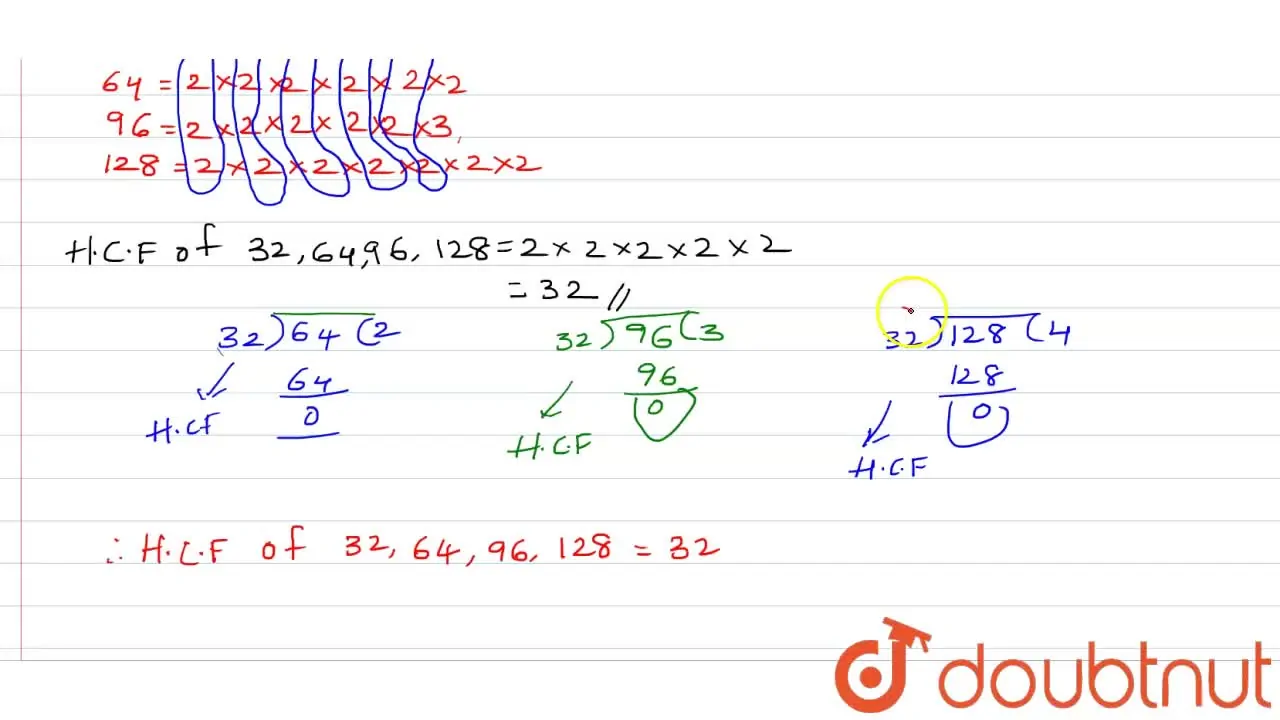 64 = 2 × 2 × 2 × 2 × 2 × 2
96 = 2 × 2 × 2 × 2 × 2 × 3,
128 = 2 × 2 × 2 × 2 × 2 × 2 × 2
H.C.F of 32, 64, 96, 128 = 2 × 2 × 2 × 2 × 2
= 32 //
32 ) 64 ( 2
64
0
H.CF
32 ) 96 ( 3
96
0
H.C.F
32 ) 128 ( 4
128
0
H.C.F
∴ H.C.F of 32, 64, 96, 128 = 32
doubtnut